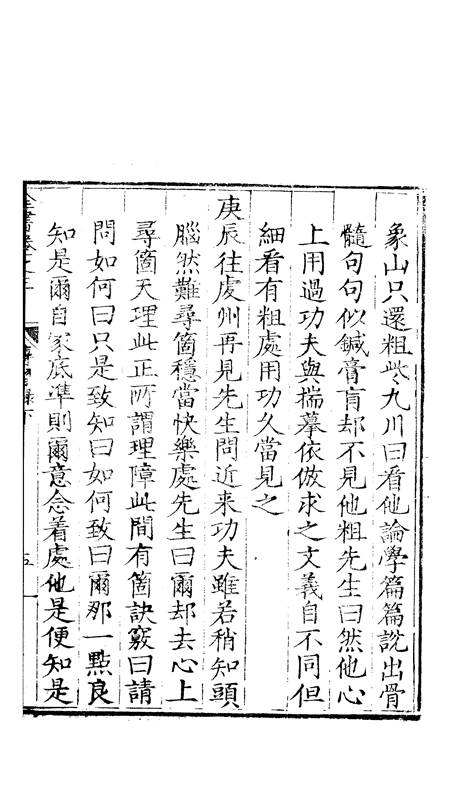 象山只還粗些九川曰看他論學篇篇說出骨
髓句句似鍼膏肓却不見他粗先生曰然他心
上用過功夫與揣摹依倣求之文義自不同但
細看有粗處用功久當見之
庚辰往虔州再見先生問近来功夫雖若稍知頭
腦然難尋箇穩當快樂處先生曰爾却去心上
尋箇天理此正所謂理障此間有箇訣竅曰請
問如何曰只是致知曰如何致曰爾那一點良
知是爾自家底準則爾意念着處他是便知是
五